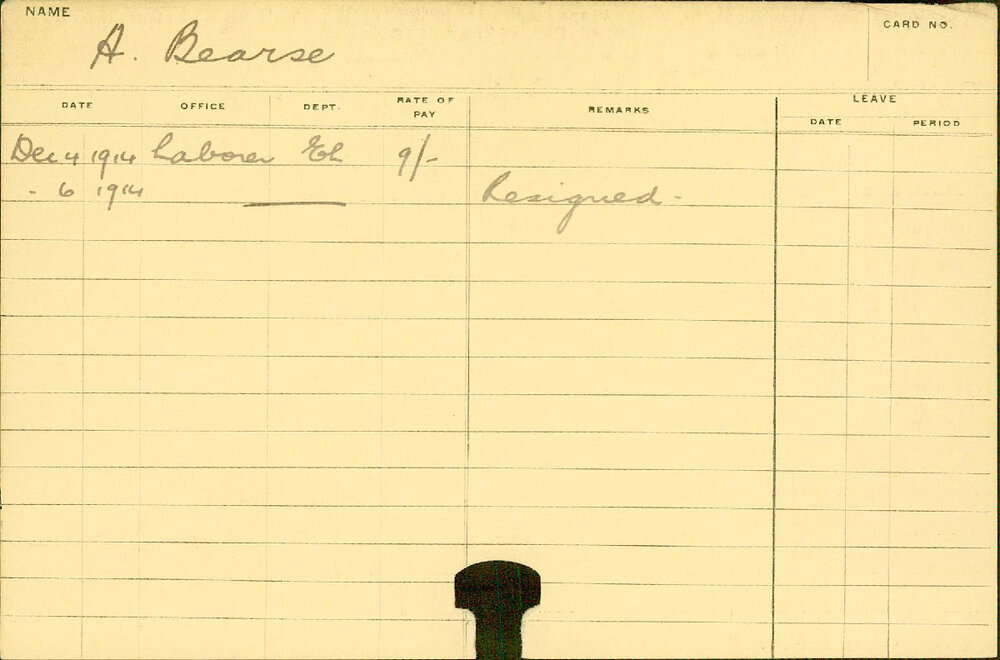 NAME
A. Bearse
CARD NO.
DATE OFFICE DEPT. RATE OF PAY REMARKS LEAVE
DATE PERIOD
Dec 4 1914 Laborer 9/-
- 6 1914 Resigned.